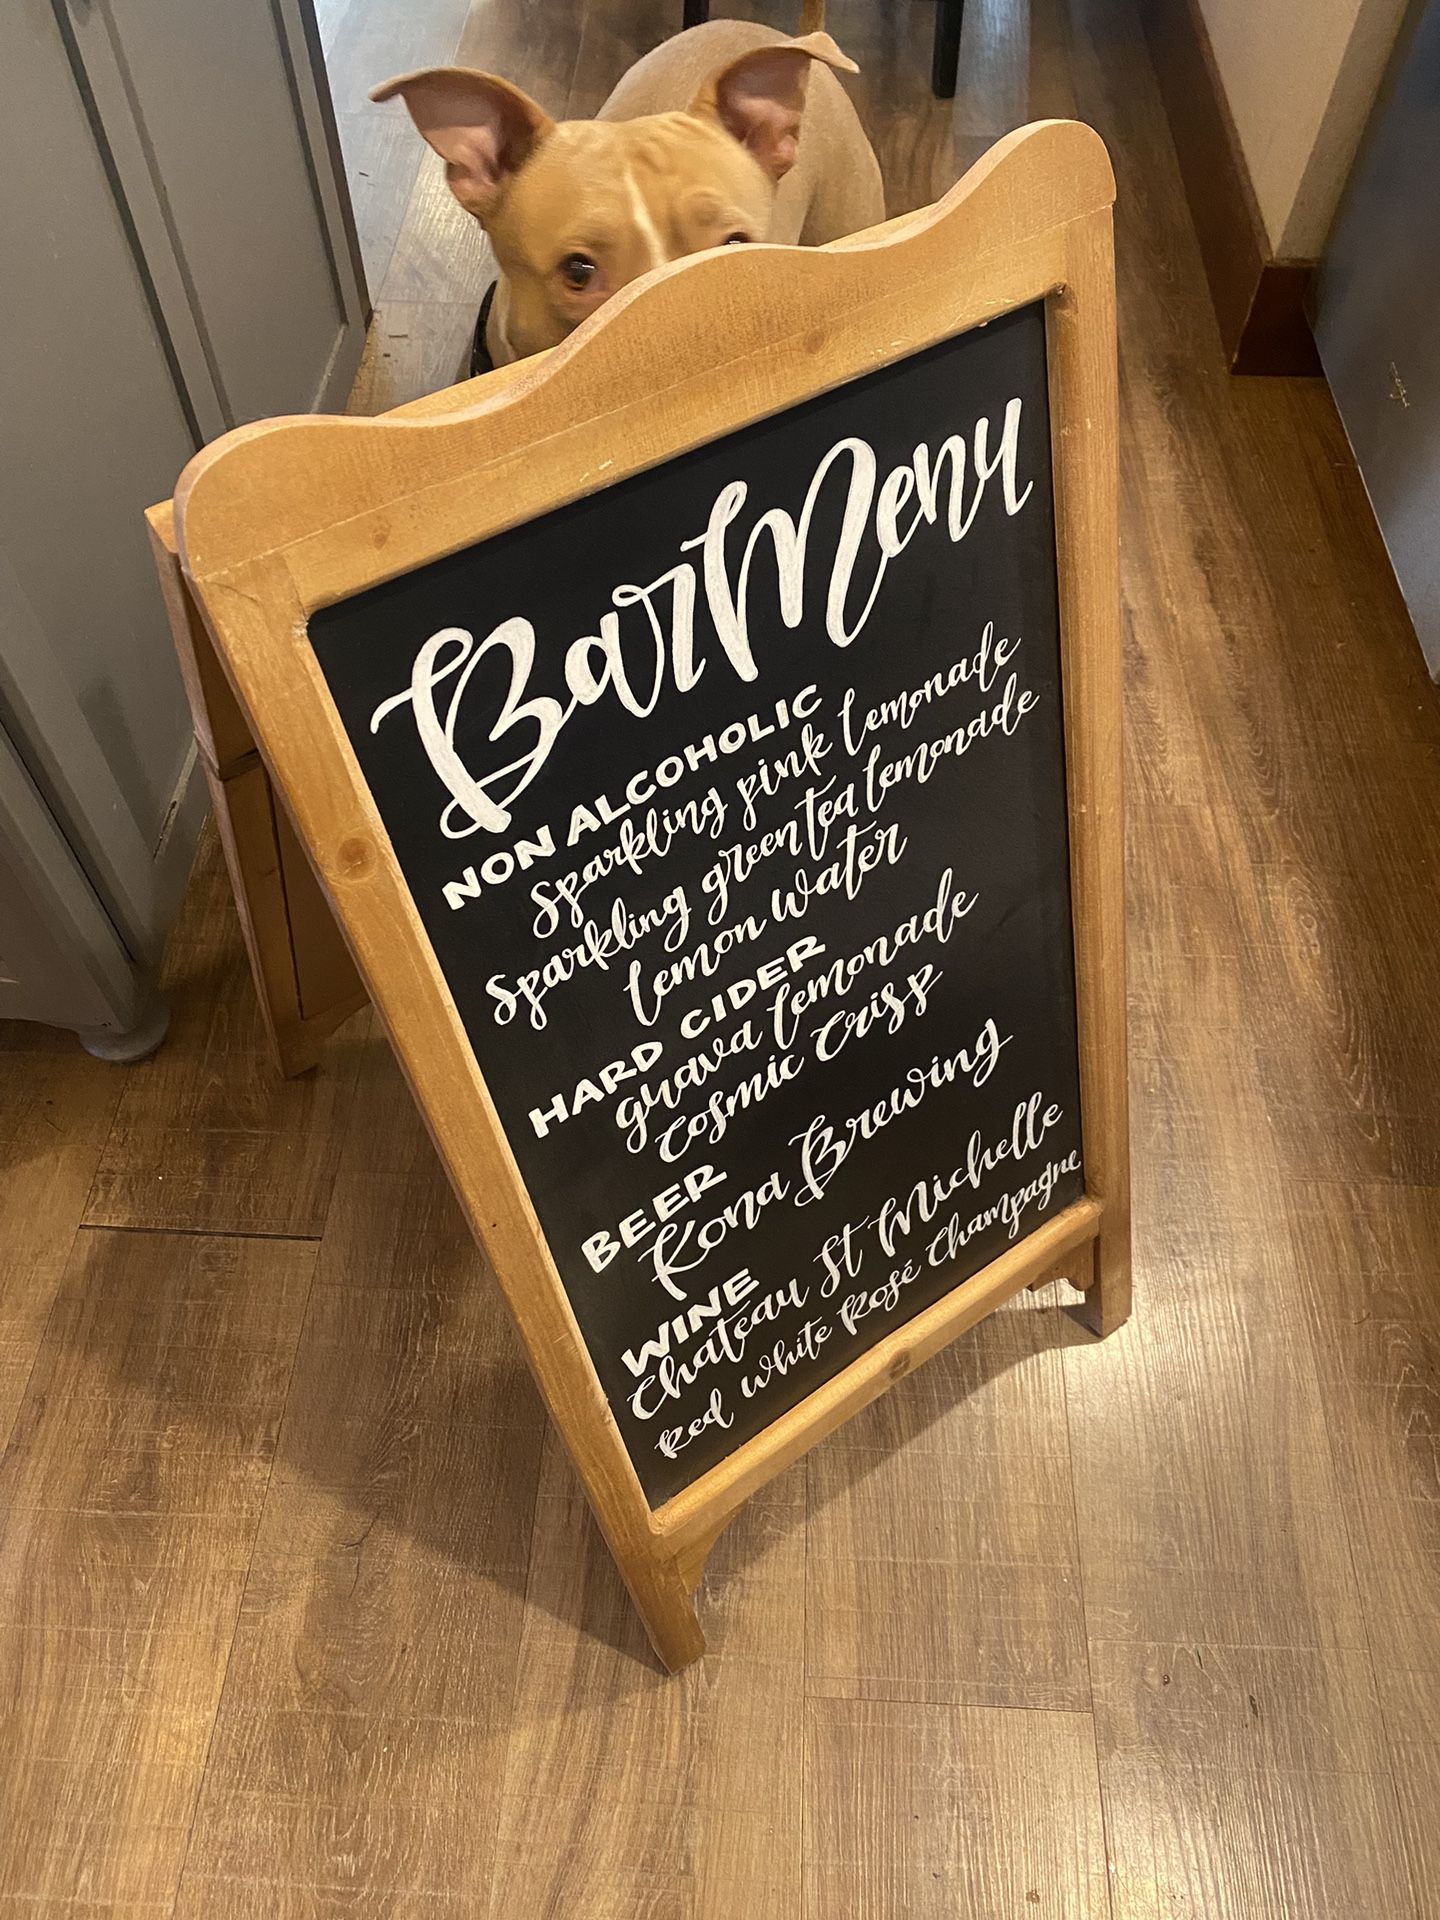 Bar Menu
NON ALCOHOLIC
Sparkling pink lemonade
Sparkling green tea lemonade
lemon water
HARD CIDER
guava lemonade
Cosmic Crisp
BEER
Kona Brewing
WINE
Chateau St Michelle
Red White Rosé Champagne